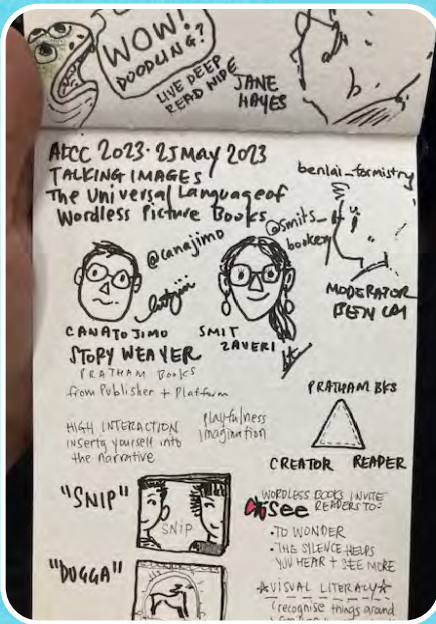 WOW!
DOODLING?
LIVE DEEP
READ WIDE
JANE
HAYES
AFCC 2023 · 25 May 2023
TALKING IMAGES
The Universal Language of
Wordless Picture Books
benlai_formistry
@canajimo
@smits_
bookery
MODERATOR
BEN LAI
CANATO JIMO
SMIT
ZAVERI
STORY WEAVER
PRATHAM Books
from Publisher + Platform
HIGH INTERACTION
inserts yourself into
the narrative
playfulness
imagination
PRATHAM BKS
CREATOR READER
"SNIP"
SNIP
WORDLESS BOOKS INVITE
See READERS TO:
• TO WONDER
• THE SILENCE HELPS
YOU HEAR + SEE MORE
"DUGGA"
☆VISUAL LITERACY☆
(recognise things around